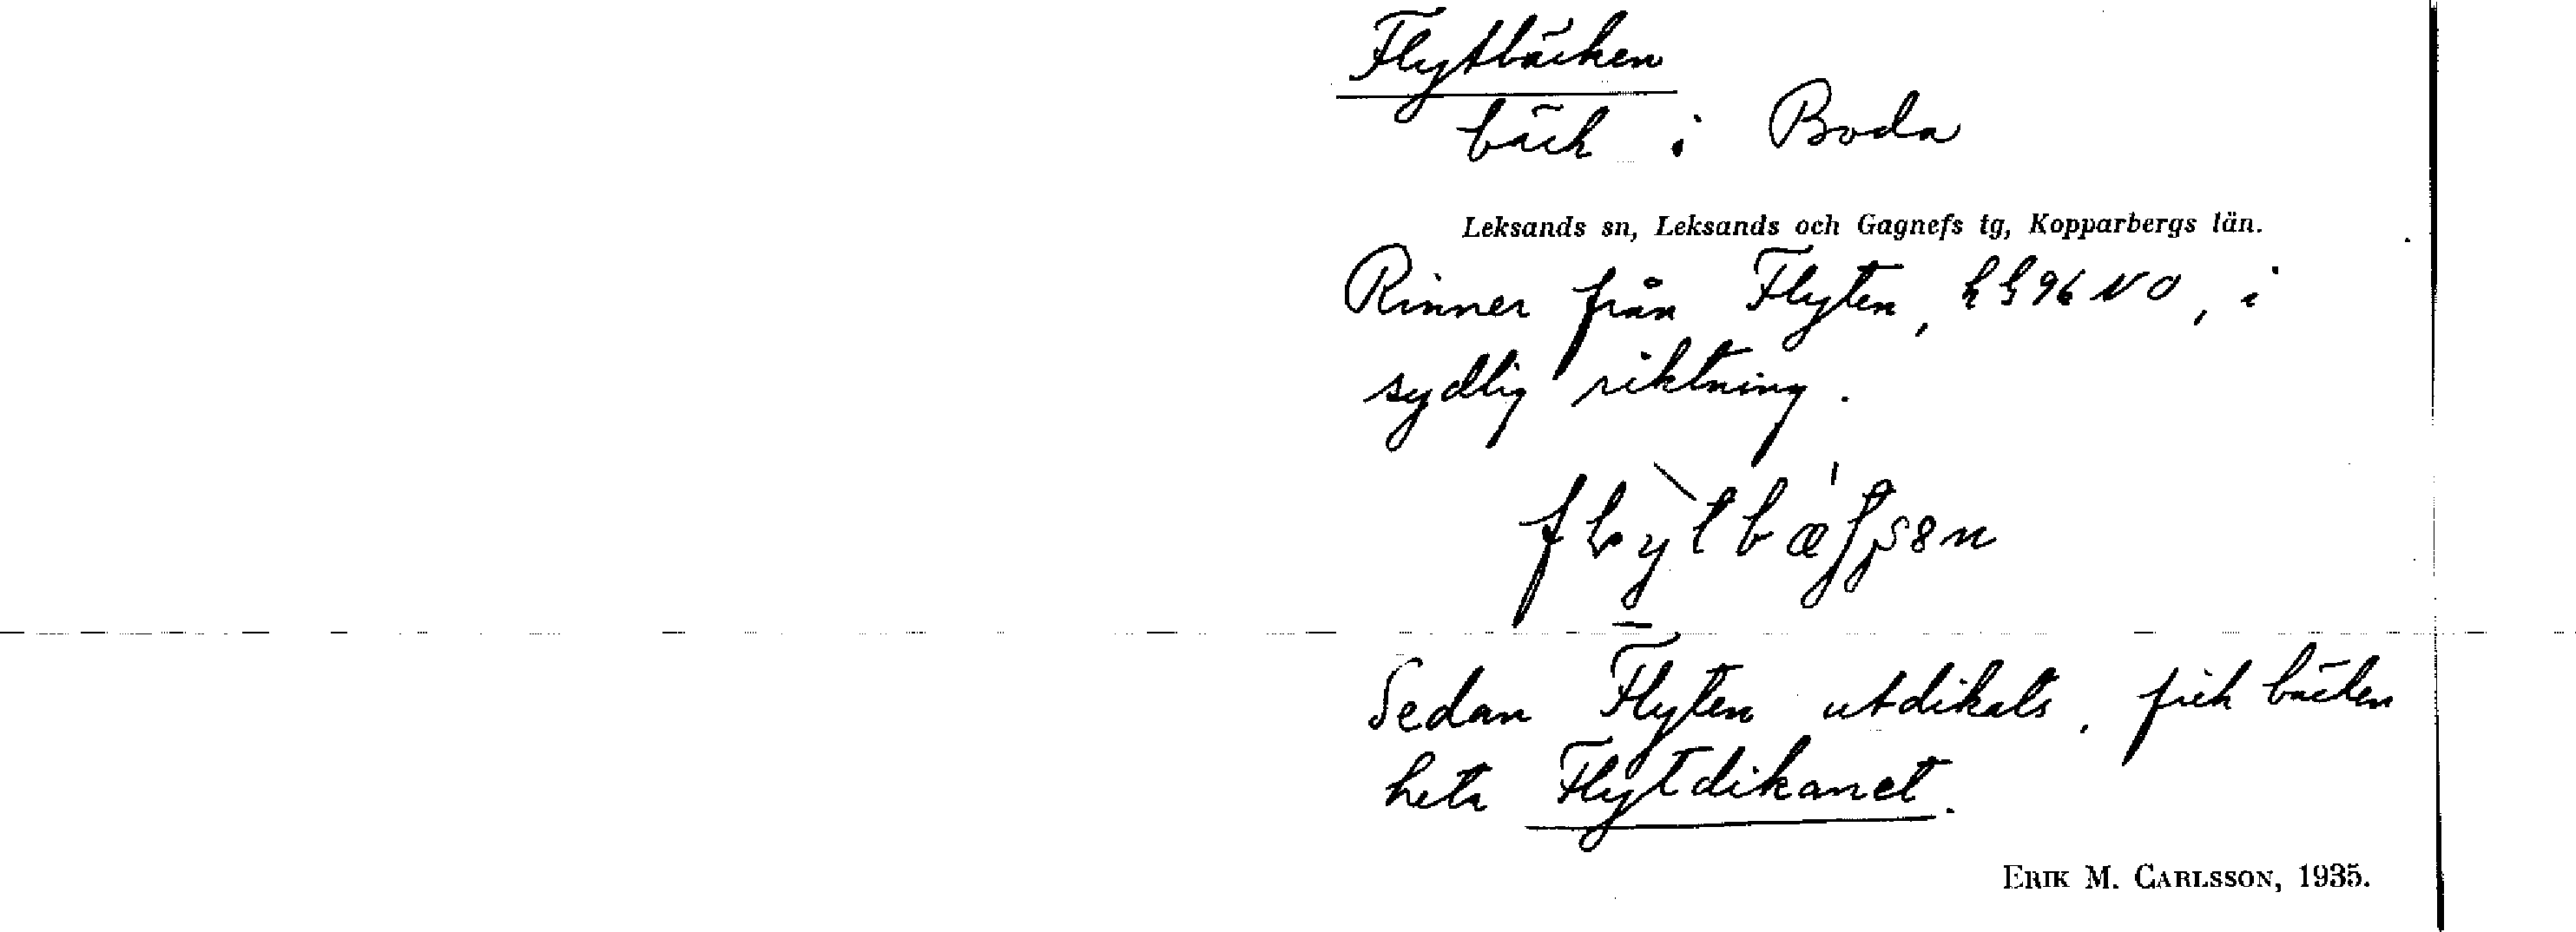 Flytbäcken
bäck i Boda
Leksands sn, Leksands och Gagnefs tg, Kopparbergs län.
Rinner från Flyten, 96 NO, i
sydlig riktning.
Sedan Flyten utdikats, fick bäcken
heta Flytdikanet.
ERIK M. CARLSSON, 1935.